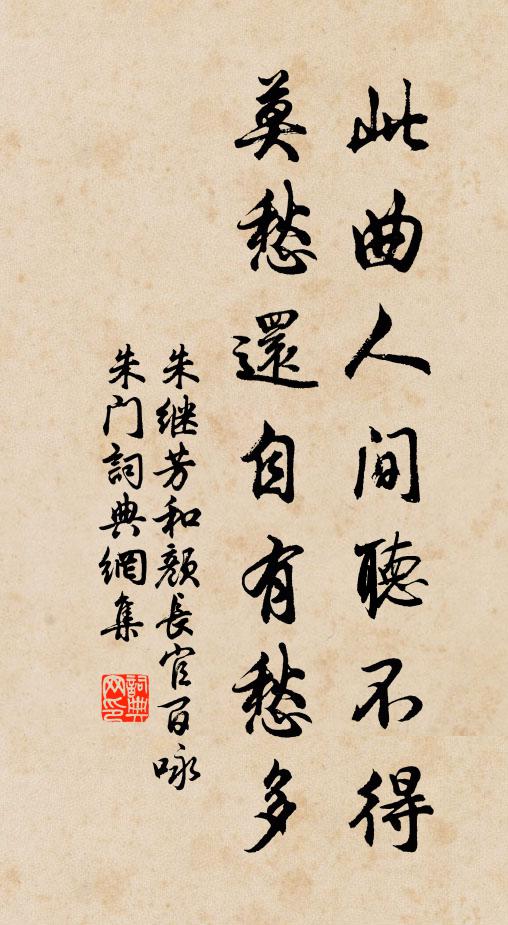 此曲人间聽不得
莫愁還自有愁多
朱继芳和颜長官百咏
朱门詞典網集
詞典网印